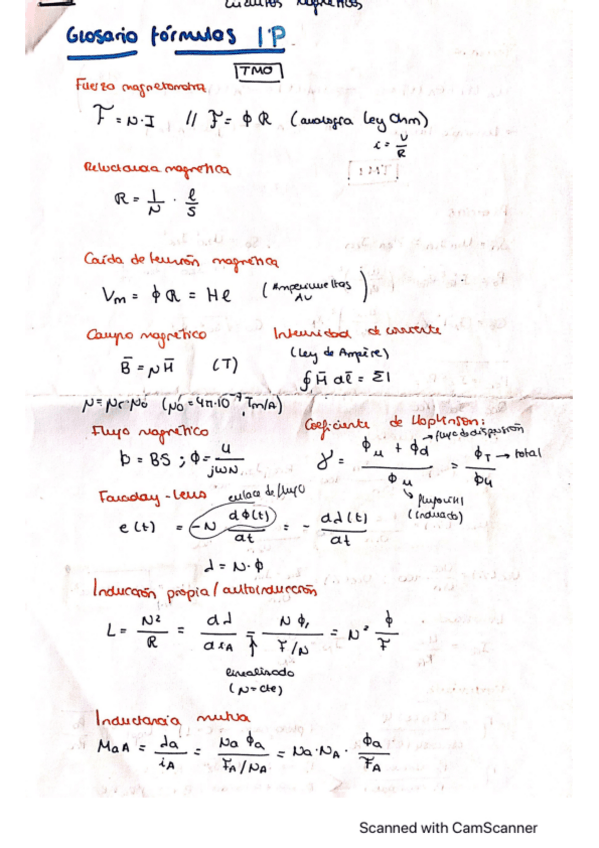 Circuitos Magnéticos
Glosario fórmulas 1P
TMO
Fuerza magnetomotriz
F = N·I // F = ϕ R (analogía Ley Ohm)
i = V/R
Reluctancia magnética
R = 1/μ · l/S
Caída de tensión magnética
Vm = ϕ R = Hl (Amperivueltas Av)
Campo magnético
B̄ = μH̄ (T)
Intensidad de corriente
(Ley de Ampère)
∮ H̄ dl̄ = ΣI
μ = μr·μ0 (μ0 = 4π·10⁻⁷ Tm/A)
Flujo magnético
ϕ = BS ; ϕ = u/jωN
Coeficiente de Hopkinson:
γ = (ϕu + ϕd)/ϕu = ϕT/ϕu → total
flujo de dispersión
flujo útil
(inducido)
Faraday-Lenz
enlace de flujo
e(t) = -N dϕ(t)/dt = - dλ(t)/dt
λ = N·ϕ
Inducción propia / autoinducción
L = N²/R = dλ/diA = N ϕ/F/N = N² ϕ/F
linealizado
(μ = cte)
Inductancia mutua
MaA = λa/iA = Na ϕa/FA/NA = Na·NA · ϕa/FA
Scanned with CamScanner